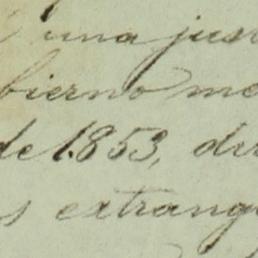 una jus
bierno me
de 1853, dir
s extrang